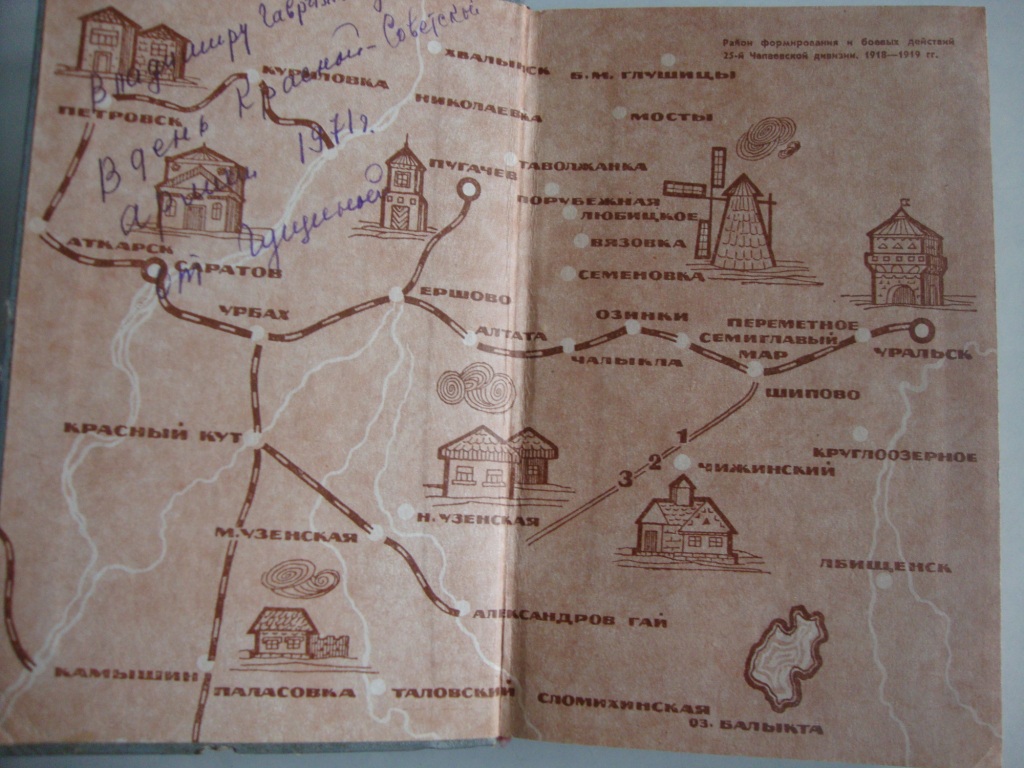 Владимиру
В день Красной - Советской
армии 1971 г.
от
Район формирования и боевых действий
25-й Чапаевской дивизии. 1918—1919 гг.
ХВАЛЫНСК
Б.М. ГЛУШИЦЫ
ПЕТРОВСК
НИКОЛАЕВКА
МОСТЫ
ПУГАЧЕВ
ТАВОЛЖАНКА
ПОРУБЕЖНАЯ
ЛЮБИЦКОЕ
АТКАРСК
ВЯЗОВКА
САРАТОВ
СЕМЕНОВКА
ЕРШОВО
УРБАХ
ОЗИНКИ
АЛТАТА
ПЕРЕМЕТНОЕ
СЕМИГЛАВЫЙ
МАР
ЧАЛЫКЛА
УРАЛЬСК
ШИПОВО
КРАСНЫЙ КУТ
1
2
3
ЧИЖИНСКИЙ
КРУГЛООЗЕРНОЕ
Н. УЗЕНСКАЯ
М. УЗЕНСКАЯ
ЛБИЩЕНСК
АЛЕКСАНДРОВ ГАЙ
КАМЫШИН
ПАЛАСОВКА
ТАЛОВСКИЙ
СЛОМИХИНСКАЯ
ОЗ. БАЛЫКТА